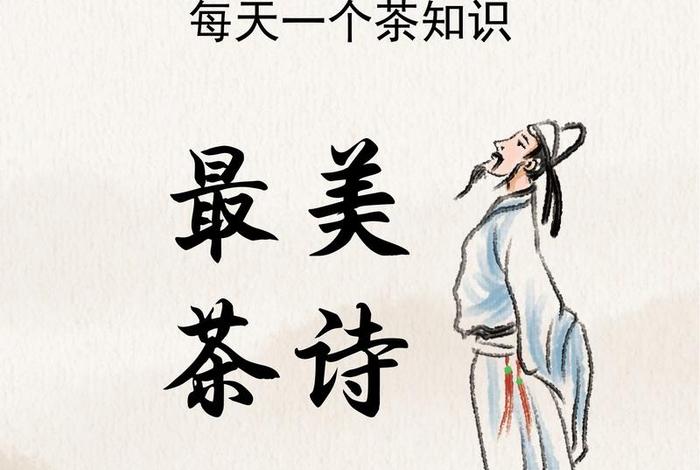 每天一个茶知识
最美
茶诗